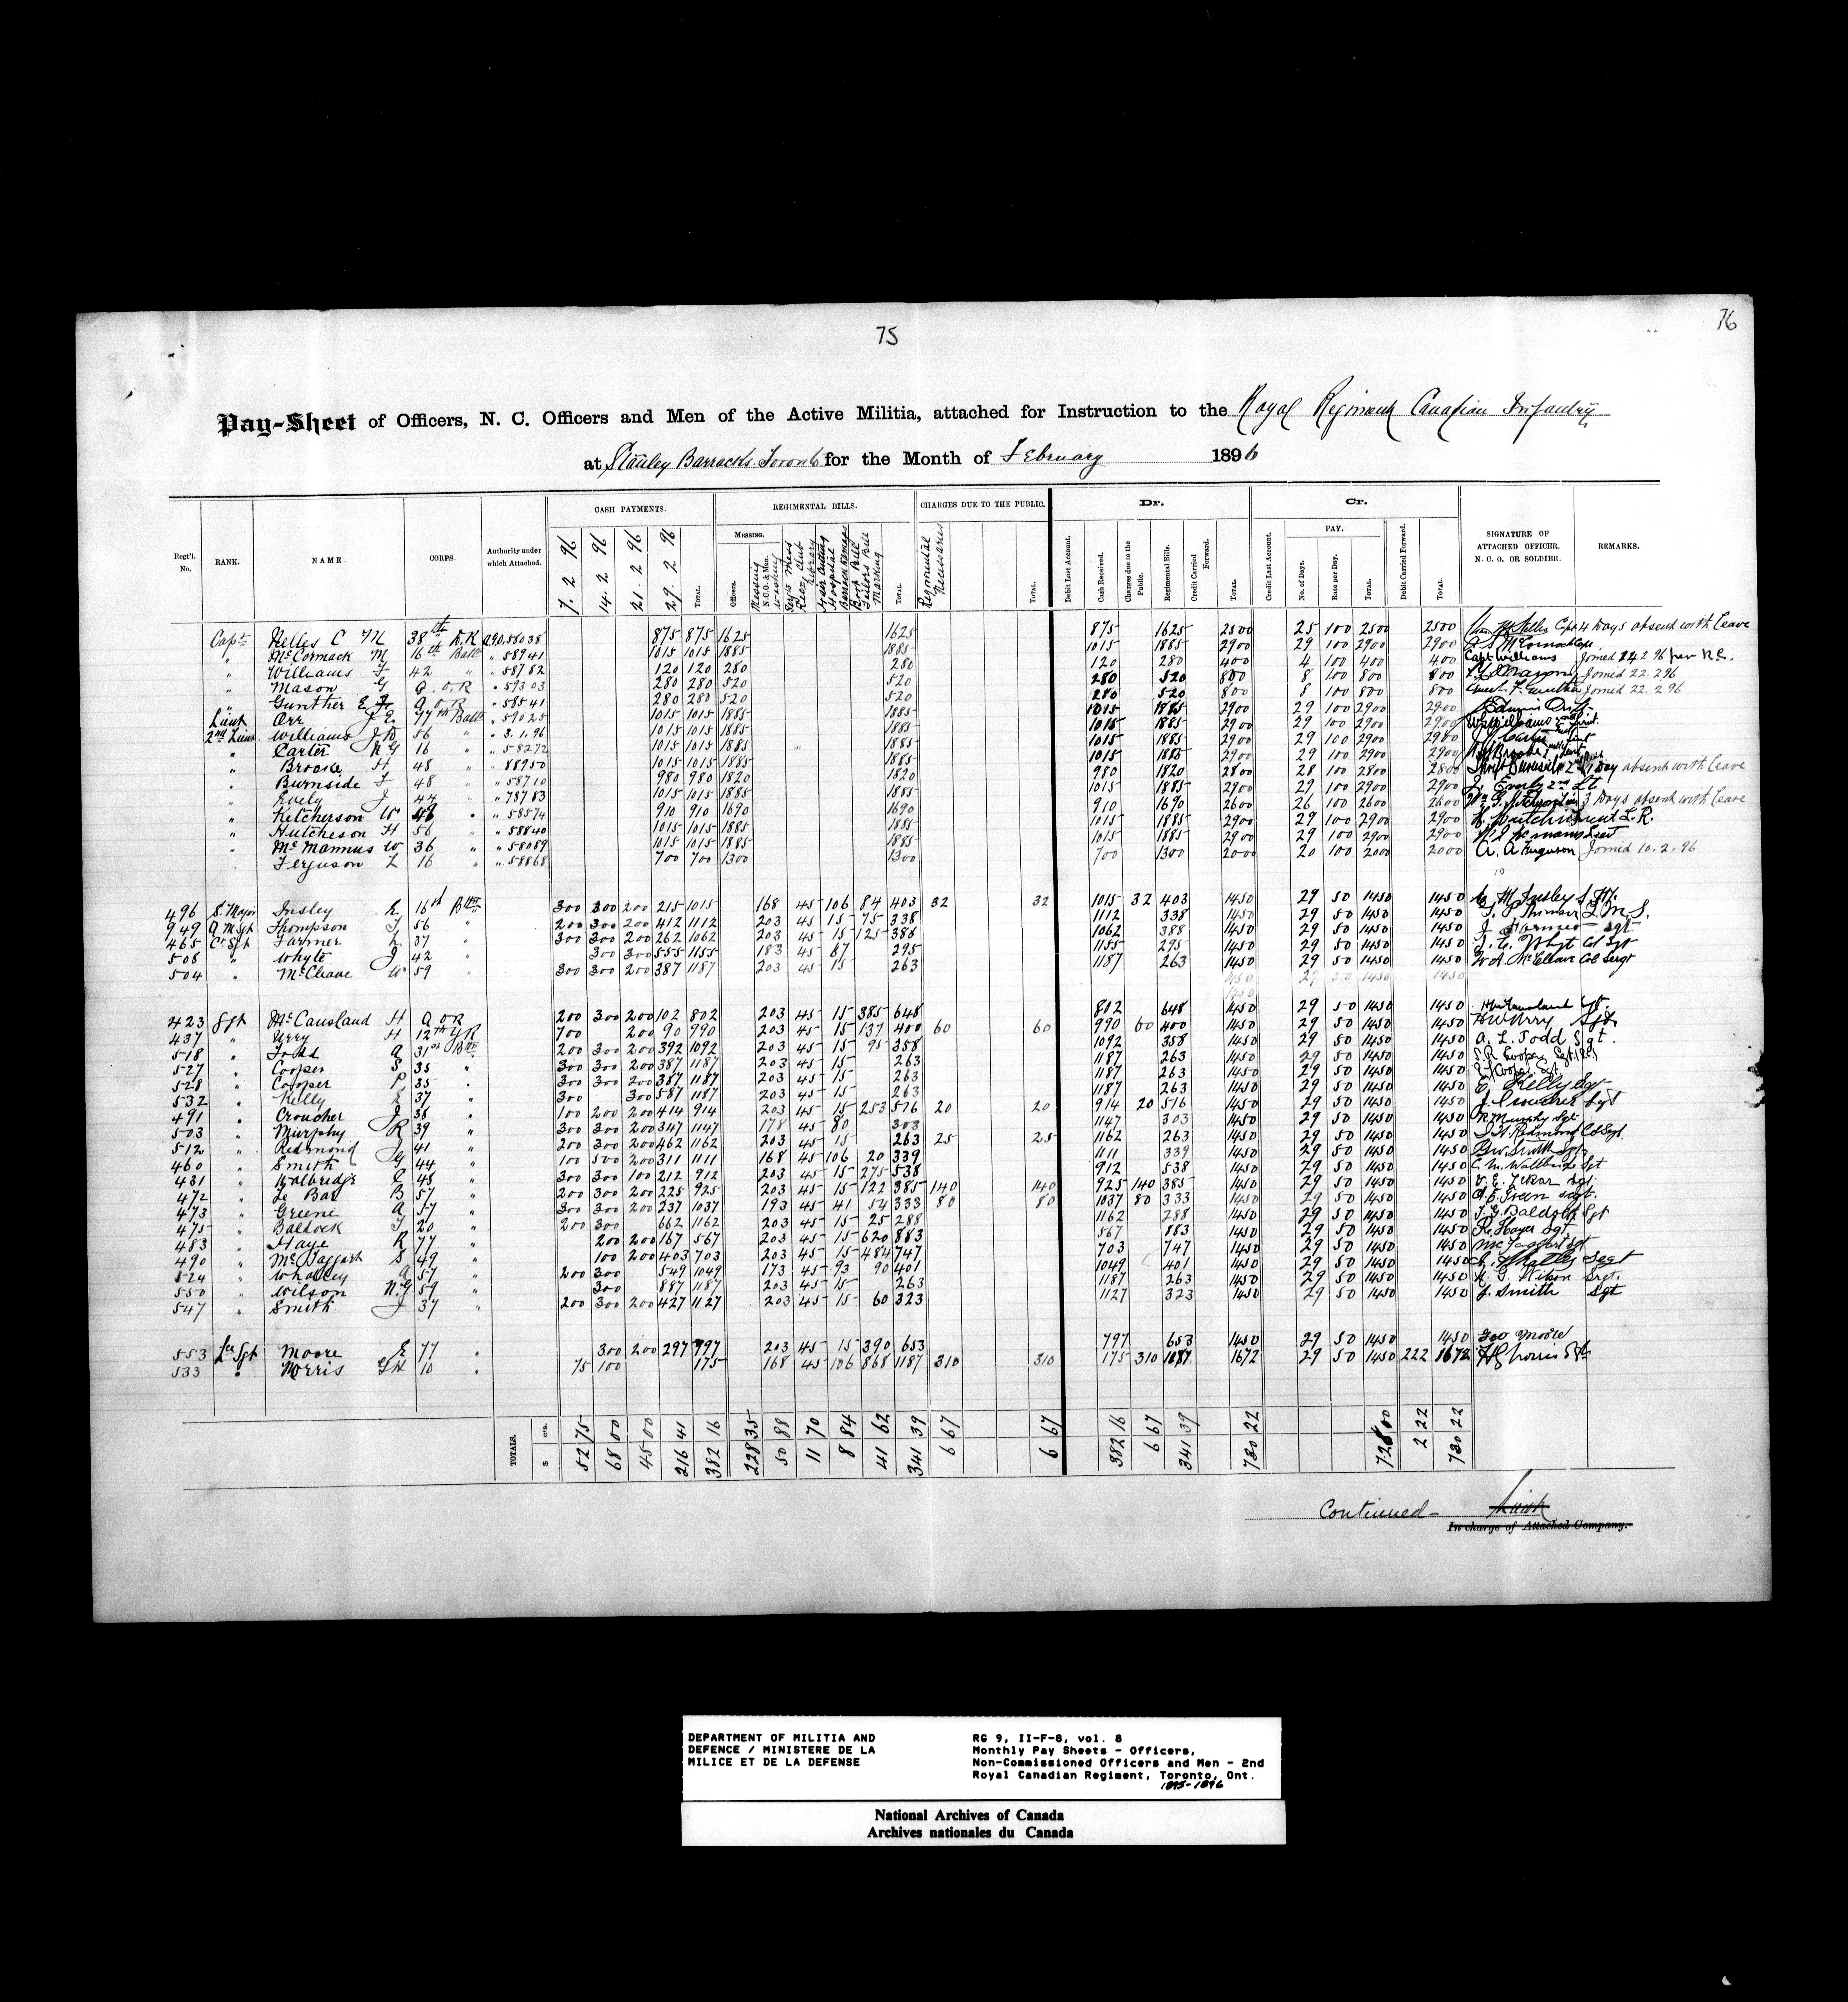 75
76
Pay-Sheet of Officers, N. C. Officers and Men of the Active Militia, attached for Instruction to the Royal Regiment Canadian Infantry
at Stanley Barracks Toronto for the Month of February 1896
CASH PAYMENTS. REGIMENTAL BILLS. CHARGES DUE TO THE PUBLIC. Dr. Cr.
Regt'l. No. RANK. NAME. CORPS. Authority under which Attached. 7. 2 96 14. 2 96 21. 2 96 29. 2 96 TOTAL. MESSING. Officers. Messing N.C.O. & Men. Washing Sergts Mess Rec. Club Library Hair Cutting Hospital Barrack Damages Boot Bill Tailors Bill Marking TOTAL. Regimental Necessaries TOTAL. Debit Last Account. Cash Received. Charges due to the Public. Regimental Bills. Credit Carried Forward. TOTAL. Credit Last Account. PAY. No. of Days. Rate per Day. TOTAL. Debit Carried Forward. TOTAL. SIGNATURE OF ATTACHED OFFICER, N. C. O. OR SOLDIER. REMARKS.
Capt Nelles C M 38th D.R 58038 875 875 1625 1625 875 1625 2500 25 100 2500 2500 4 Days absent with leave
" McCormack M 16th Batt " 58941 1015 1015 1885 1885 1015 1885 2900 29 100 2900 2900
" Williams F 42 " " 58782 120 120 280 280 120 280 400 4 100 400 400 Capt Williams Joined 24 2 96
" Mason G Q.O.R " 59303 280 280 520 520 280 520 800 8 100 800 800 Joined 22. 2 96
" Gunther E Q.O.R " 58541 280 280 520 520 280 520 800 8 100 800 800 Joined 22. 2 96
Lieut Orr J E 77th Batt " 59025 1015 1015 1885 1885 1015 1885 2900 29 100 2900 2900
2nd Lieut Williams 56 " " 3. 1. 96 1015 1015 1885 1885 1015 1885 2900 29 100 2900 2900
" Carter N G 16 " " 58272 1015 1015 1885 1885 1015 1885 2900 29 100 2900 2900
" Brooke H 48 " " 88950 1015 1015 1885 1885 1015 1885 2900 29 100 2900 2900
" Burnside F 48 " " 58710 980 980 1820 1820 980 1820 2800 28 100 2800 2800 1 Day absent with leave
" Evely J 44 " " 78783 1015 1015 1885 1885 1015 1885 2900 29 100 2900 2900
" Ketcherson W " " 58574 910 910 1690 1690 910 1690 2600 26 100 2600 2600 3 Days absent with leave
" Hutcheson H 56 " " 58840 1015 1015 1885 1885 1015 1885 2900 29 100 2900 2900
" McMannus W 36 " " 58089 1015 1015 1885 1885 1015 1885 2900 29 100 2900 2900
Ferguson 16 " " 58868 700 700 1300 1300 700 1300 2000 20 100 2000 2000 A. A Ferguson Joined 10. 2. 96
496 S. Major Insley 16th Battn 300 300 200 215 1015 168 45 106 84 403 32 32 1015 32 403 1450 29 50 1450 1450
949 Q M Sgt Thompson 56 " 200 300 200 412 1112 203 45 15 75 338 1112 338 1450 29 50 1450 1450
465 Cr Sgt Farmer 37 " 300 300 200 262 1062 203 45 15 125 388 1062 388 1450 29 50 1450 1450 J. Farmer Sgt
508 " Whyte J 42 300 300 555 1155 183 45 87 295 1155 295 1450 29 50 1450 1450 Whyt Col Sgt
504 " McCleave W 59 300 300 200 387 1187 203 45 15 263 1187 263 1450 29 50 1450 1450 W A. McCleave Col Sergt
423 Sgt McCausland H Q O R 200 300 200 102 802 203 45 15 385 648 802 648 1450 29 50 1450 1450
437 " Urry H 12th Y R 700 200 90 990 203 45 15 137 400 60 60 990 60 400 1450 29 50 1450 1450 H W Urry Sgt
518 " Todd A 31st Btn 200 300 200 392 1092 203 45 15 95 358 1092 358 1450 29 50 1450 1450 A. L. Todd Sgt.
527 " Cooper S 35 " 300 300 200 387 1187 203 45 15 263 1187 263 1450 29 50 1450 1450
528 " Cooper P 35 . 300 300 200 387 1187 203 45 15 263 1187 263 1450 29 50 1450 1450
532 " Kelly E 37 " 300 300 587 1187 203 45 15 263 1187 263 1450 29 50 1450 1450 E Kelly Sgt
491 " Croucher J 38 " 100 200 200 414 914 203 45 15 253 516 20 20 914 20 516 1450 29 50 1450 1450 J. Croucher Sgt
503 " Murphy R 39 " 300 300 200 347 1147 178 45 80 303 1147 303 1450 29 50 1450 1450 R Murphy Sgt
512 " Redmond J 41 " 200 300 200 462 1162 203 45 15 263 25 25 1162 263 1450 29 50 1450 1450
460 " Smith G 44 " 100 500 200 311 1111 168 45 106 20 339 1111 339 1450 29 50 1450 1450 G W. Smith Sgt
431 " Walbridge C 45 " 300 300 100 212 912 203 45 15 275 538 912 538 1450 29 50 1450 1450 C. M. Wallbridge Sgt
472 " Le Bar B 57 " 200 300 200 225 925 203 45 15 122 385 140 140 925 140 385 1450 29 50 1450 1450
473 " Greene A 57 " 300 300 200 237 1037 193 45 41 54 333 80 80 1037 80 333 1450 29 50 1450 1450
475 " Baldock T 20 " 200 300 662 1162 203 45 15 25 288 1162 288 1450 29 50 1450 1450
483 " Haye R 77 " 200 200 167 567 203 45 15 620 883 567 883 1450 29 50 1450 1450
490 " McTaggart S 49 " 100 200 403 703 203 45 15 484 747 703 747 1450 29 50 1450 1450
524 " Whatley A 57 " 200 300 549 1049 173 45 93 90 401 1049 401 1450 29 50 1450 1450
550 " Wilson N.G 59 " 300 887 1187 203 45 15 263 1187 263 1450 29 50 1450 1450
547 " Smith J 37 " 200 300 200 427 1127 203 45 15 60 323 1127 323 1450 29 50 1450 1450 J. Smith Sgt
553 Lce Sgt Moore E 77 " 300 200 297 797 203 45 15 390 653 797 653 1450 29 50 1450 1450 Moore
533 " Morris 10 " 75 100 175 168 45 106 868 1187 310 310 175 310 1187 1672 29 50 1450 222 1672
TOTALS. $ c'ts. 52 75 68 00 45 00 216 41 382 16 228 35 50 88 11 70 8 84 41 62 341 39 6 67 6 67 382 16 6 67 341 39 730 22 728 00 2 22 730 22
Continued
In charge of Attached Company.
DEPARTMENT OF MILITIA AND
DEFENCE / MINISTERE DE LA
MILICE ET DE LA DEFENSE
RG 9, II-F-8, vol. 8
Monthly Pay Sheets - Officers,
Non-Commissioned Officers and Men - 2nd
Royal Canadian Regiment, Toronto, Ont.
1895-1896
National Archives of Canada
Archives nationales du Canada